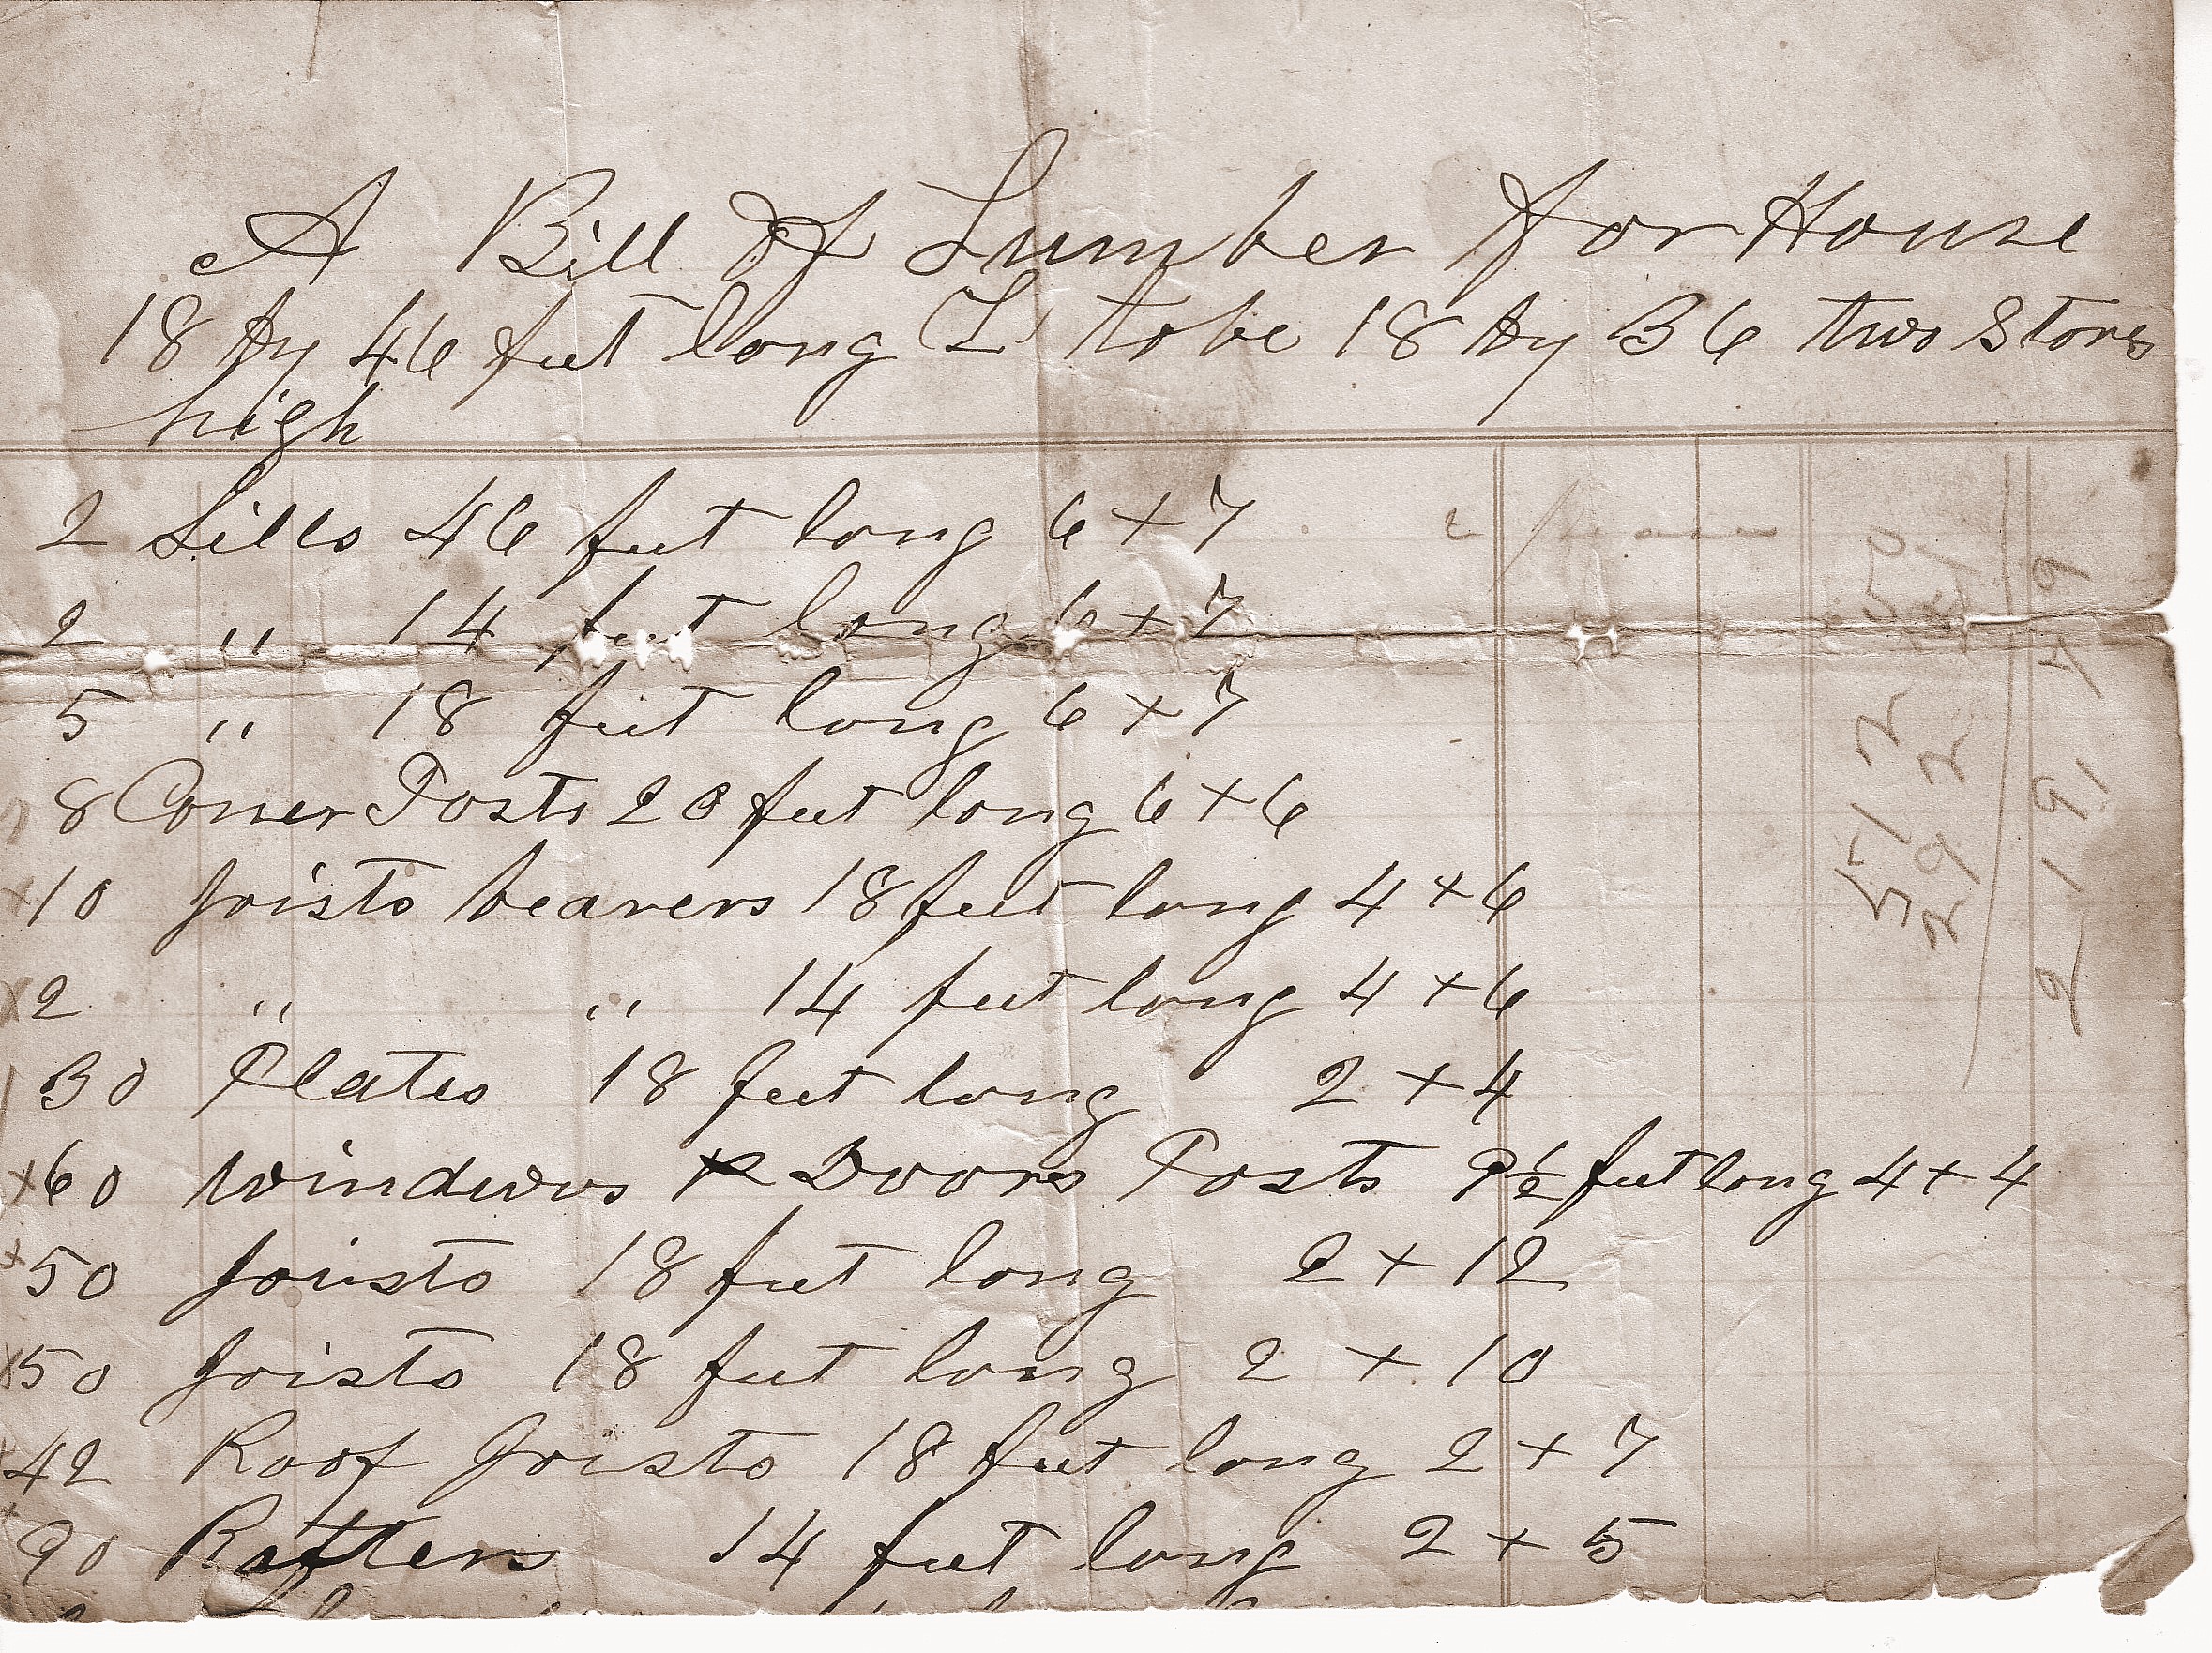 A Bill Of Lumber for House
18 by 46 feet long L to be 18 by 36 two Stores
high
2 Sills 46 feet long 6 + 7
2 " 14 feet long 6 + 7
5 " 18 feet long 6 + 7
8 Coner Posts 20 feet long 6 + 6
10 Joists bearers 18 feet long 4 + 6
2 " " 14 feet long 4 + 6
30 Plates 18 feet long 2 + 4
60 windwos & Doors Posts 9 1/2 feet long 4 + 4
50 Joists 18 feet long 2 + 12
50 Joists 18 feet long 2 + 10
42 Roof Joists 18 feet long 2 + 7
90 Rafters 14 feet long 2 + 5